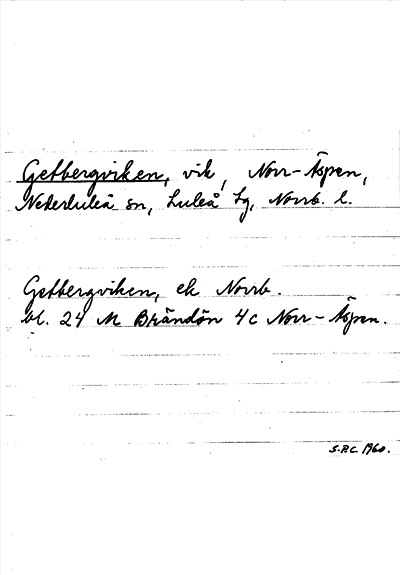 Getbergviken, vik, Norr-Äspen,
Nederluleå sn, Luleå tg, Norrb. l.
Getbergviken, ek Norrb.
bl. 24 M Brändön 4c Norr-Äspen.
S.P.C. 1960.